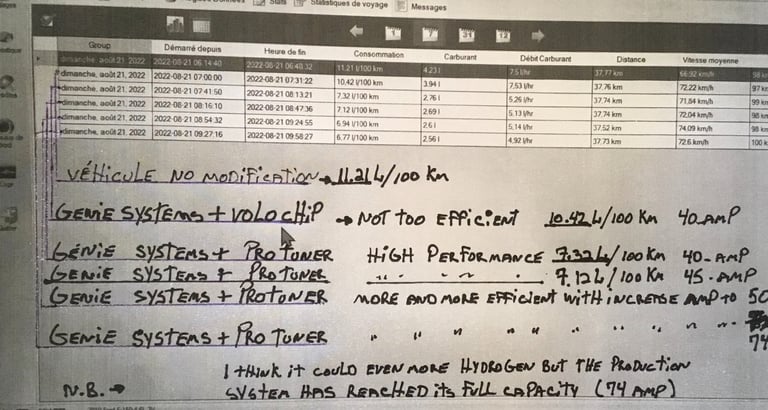 Stats
Statistiques de voyage
Messages
1 7 31 12
Group Démarré depuis Heure de fin Consommation Carburant Débit Carburant Distance Vitesse moyenne
dimanche, août 21, 2022 2022-08-21 06:14:40 2022-08-21 06:48:32 11,21 l/100 km 4.23 l 7.5 l/hr 37,77 km 66.92 km/h 98 k
dimanche, août 21, 2022 2022-08-21 07:00:00 2022-08-21 07:31:22 10,42 l/100 km 3.94 l 7,53 l/hr 37,76 km 72.22 km/h 97 k
dimanche, août 21, 2022 2022-08-21 07:41:50 2022-08-21 08:13:21 7,32 l/100 km 2,76 l 5.26 l/hr 37,74 km 71,84 km/h 99 k
dimanche, août 21, 2022 2022-08-21 08:16:10 2022-08-21 08:47:36 7,12 l/100 km 2.69 l 5.13 l/hr 37.74 km 72,04 km/h 98 k
dimanche, août 21, 2022 2022-08-21 08:54:32 2022-08-21 09:24:55 6,94 l/100 km 2.6 l 5,14 l/hr 37.52 km 74.09 km/h 98 k
dimanche, août 21, 2022 2022-08-21 09:27:16 2022-08-21 09:58:27 6,77 l/100 km 2.56 l 4.92 l/hr 37.73 km 72.6 km/h 100 k
VÉHICULE NO MODIFICATION → 11.21 L/100 Km
GENIE SYSTEMS + VOLO CHIP → NOT TOO EFFICIENT 10.42 L/100 Km 40 AMP
GÉNIE SYSTEMS + PRO TUNER HIGH PERFORMANCE 7.32 L/100 Km 40-AMP
GENIE SYSTEMS & PROTUNER " " " " 7.12 L/100 Km 45-AMP
GENIE SYSTEMS + PROTUNER MORE AND MORE EFFICIENT WITH INCREASE AMP TO 50
GENIE SYSTEMS + PRO TUNER " " " " " " " " 74
I THINK IT COULD EVEN MORE HYDROGEN BUT THE PRODUCTION
N.B. → SYSTEM HAS REACHED ITS FULL CAPACITY (74 AMP)